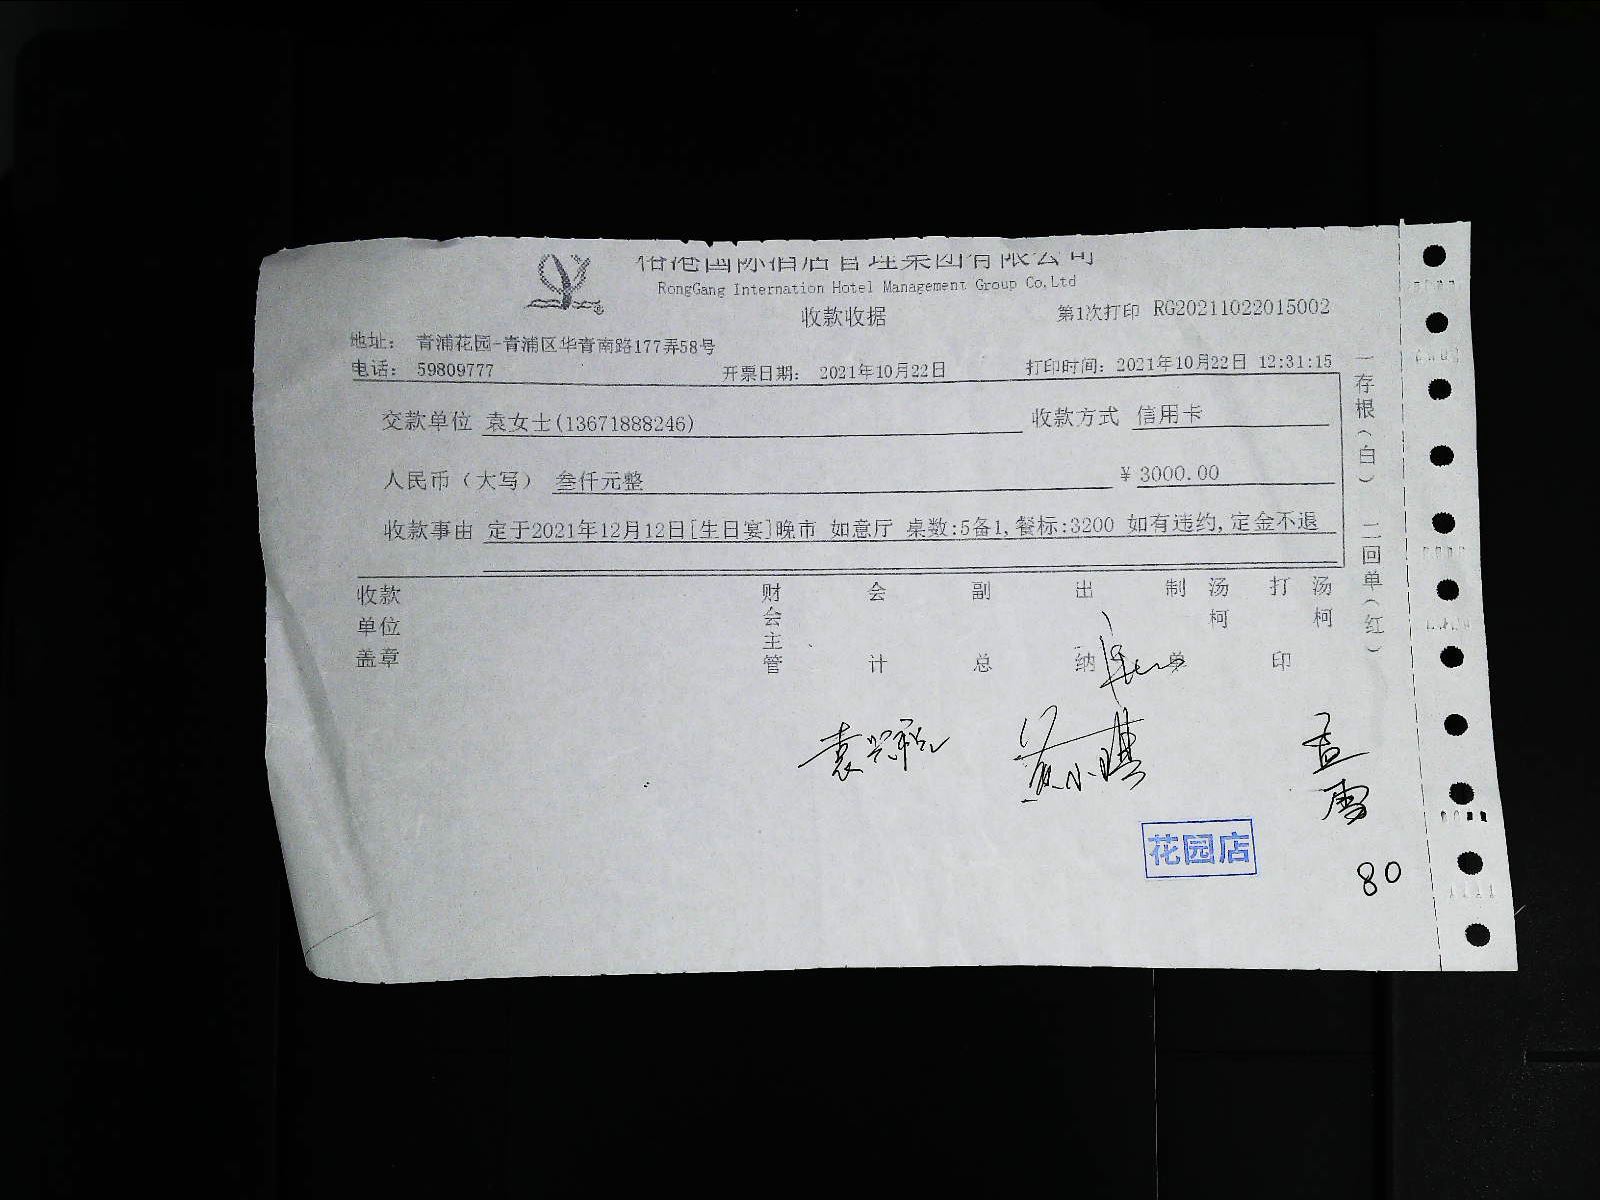 国际酒店管理集团有限公司
RongGang Internation Hotel Management Group Co,Ltd
收款收据
第1次打印 RG20211022015002
地址: 青浦花园-青浦区华青南路177弄58号
电话: 59809777 开票日期: 2021年10月22日 打印时间: 2021年10月22日 12:31:15
交款单位 袁女士(13671888246) 收款方式 信用卡
人民币(大写) 叁仟元整 ¥ 3000.00
收款事由 定于2021年12月12日[生日宴]晚市 如意厅 桌数:5备1,餐标:3200 如有违约,定金不退
收款单位盖章 财会主管 会计 副总 出纳 制单 汤柯 打印 汤柯
一存根(白) 二回单(红)
花园店
80